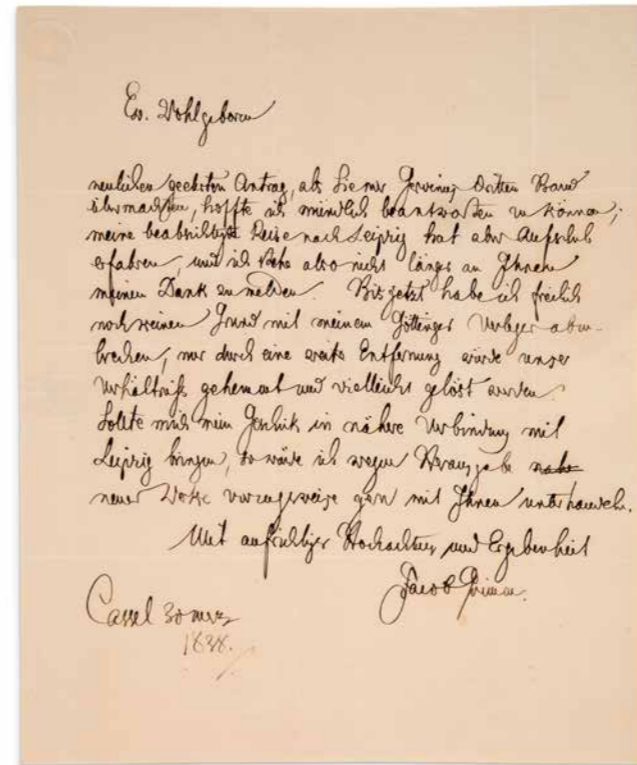 Ew. Wohlgeboren
neulichen geehrten Antrag, als Sie mir Gervinus dritten Band
übermachten, hoffte ich mündlich beantworten zu können;
meine beabsichtigte Reise nach Leipzig hat aber Aufschub
erfahren, und ich stehe also nicht länger an Ihnen
meinen Dank zu melden. Bis jetzt habe ich freilich
noch keinen Grund mit meinem Göttinger Verleger abzu-
brechen, nur durch eine weite Entfernung würde unser
Verhältniß gehemmt und vielleicht gelöst werden.
Sollte mich mein Geschick in nähere Verbindung mit
Leipzig bringen, so würde ich wegen Herausgabe
neuer Werke vorzugsweise gern mit Ihnen unterhandeln.
Mit aufrichtiger Hochachtung und Ergebenheit
Jacob Grimm.
Cassel 30 merz
1838.